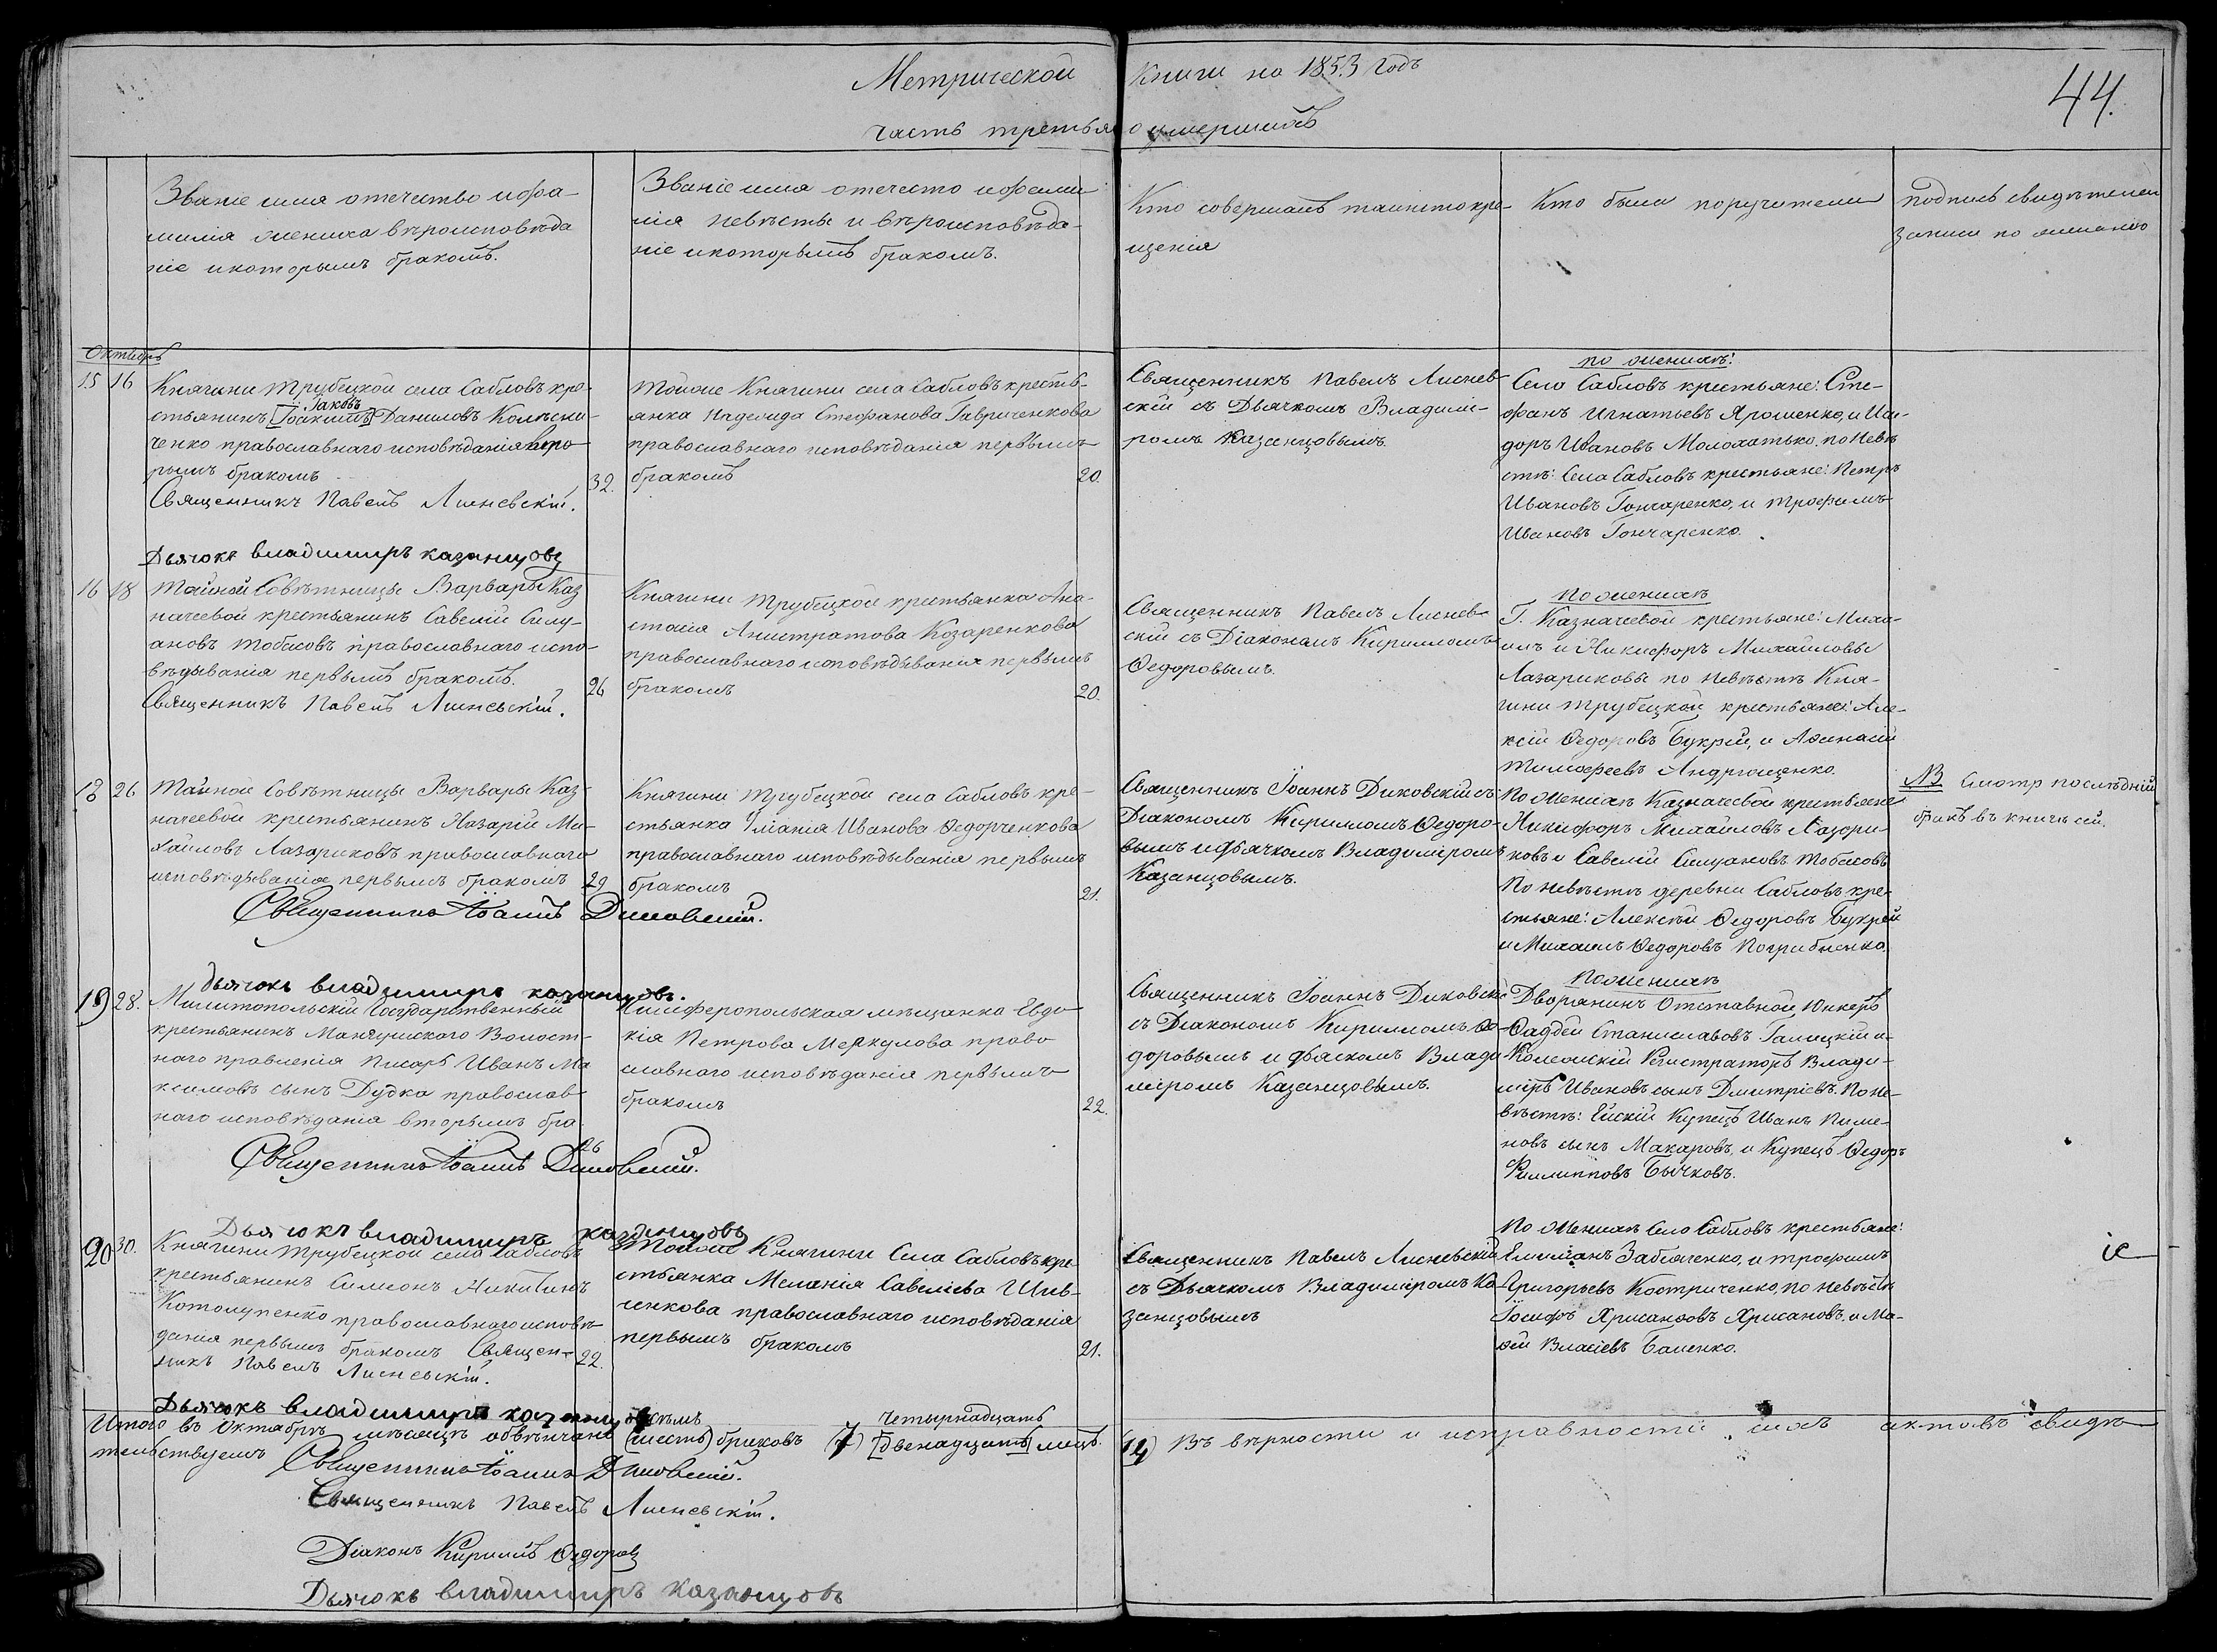 Метрической книги на 1853 годъ
44.
часть третья о умершихъ
Званіе имя отечество и фа-
милія жениха вѣроисповѣда
ніе и которымъ бракомъ.
Званіе имя отечесто и фами
лія невѣсты и вѣроисповѣда-
ніе и которымъ бракомъ.
Кто совершалъ таинсто кре-
щенія
Кто были поручители
подпись свидѣтелей
записи по желанію
Октябрь
15 16
Княгини Трубецкой села Сабловъ кре-
Іаковъ
стьянинъ [Іоакимъ] Даниловъ Колѣсни-
ченко православнаго исповѣданія вто-
рымъ бракомъ
32.
Священникъ Павелъ Лисневскій.
Дьячокъ владимиръ казанцовъ
Тойже Княгини села Сабловъ кресть-
янка Надежда Стефанова Гавриченкова
православнаго исповѣданія первымъ
бракомъ
20.
Священникъ Павелъ Лиснев-
скій съ Дьячкомъ Владими-
ромъ Казанцовымъ.
по женихѣ:
Село Сабловъ крестьяне: Сте-
фанъ Игнатьевъ Ярошенко, и Иси-
доръ Ивановъ Молохатько, по невѣ
стѣ: Села Сабловъ крестьяне: Петръ
Ивановъ Гончаренко, и Трофимъ
Ивановъ Гончаренко.
16 18
Тайной Совѣтницы Варвары Каз
начеевой крестьянинъ Савелій Силу-
ановъ Тобасовъ православнаго испо-
вѣдыванія первымъ бракомъ.
26
Священникъ Павелъ Лисневскій.
Княгини Трубецкой крестьянка Ана-
стасія Анистратова Козаренкова
православнаго исповѣдыванія первымъ
бракомъ
20.
Священникъ Павелъ Лиснев-
скій съ Діакономъ Кирилломъ
Ѳедоровымъ.
По женихѣ
Г. Казначеевой крестьяне: Миха-
илъ и Никифоръ Михайловы
Лазариковы по невѣстѣ Кня-
гини Трубецкой крестьяне: Але-
ксій Ѳедоровъ Букрѣй, и Аѳанасій
Тимофеевъ Андрющенко.
18 26
Тайной Совѣтницы Варвары Каз-
начеевой крестьянинъ Назарій Ми-
хайловъ Лазариковъ православнаго
исповѣдыванія первымъ бракомъ
29
Священникъ Іоаннъ Диковскій.
Княгини Трубецкой села Сабловъ кре-
стьянка Уліанія Иванова Ѳедорченкова
православнаго исповѣдыванія первымъ
бракомъ
21.
Священникъ Іоаннъ Диковскій съ
Діакономъ Кирилломъ Ѳедоро-
вымъ и дьячкомъ Владиміромъ
Казанцовымъ.
По женихѣ Казначеевой крестьяне
Никифоръ Михайловъ Лазари-
ковъ и Савелій Силуановъ Тобасовъ
По невѣстѣ деревни Сабловъ кре-
стьяне: Алексѣй Ѳедоровъ Букрѣй
и Михаилъ Ѳедоровъ Погрибненко.
NB Смотр послѣдній
бракъ въ книгѣ сей.
дьячокъ владимиръ казанцовъ.
19 28.
Милитопольскій Государственный
крестьянинъ Мангушскаго Волост-
наго правленія Писарь Иванъ Ма
ксимовъ сынъ Дудка православ-
наго исповѣданія вторымъ бра.
26
Священникъ Іоаннъ Диковскій.
Симферопольская мѣщанка Евдо-
кія Петрова Меркулова право
славнаго исповѣданія первымъ
бракомъ
22.
Священникъ Іоаннъ Диковскій
съ Діакономъ Кирилломъ Ѳе-
доровымъ и дьячкомъ Влади
міромъ Казанцовымъ.
По женихѣ
Дворянинъ Отставной Юнкеръ
Фаддей Станиславовъ Галицкій и
Колежскій Регистраторъ Влади-
міръ Ивановъ сынъ Дмитріевъ. По не-
вѣстѣ: Ейскій Купецъ Иванъ Пиме-
новъ сынъ Макаровъ, и Купецъ Ѳедоръ
Филлипповъ Бычковъ.
Дьячокъ владимиръ казанцовъ
20 30.
Княгини Трубецкой села Сабловъ
крестьянинъ Симеонъ Никитинъ
Котолупенко православнаго исповѣ-
данія первымъ бракомъ Священ-
22.
никъ Павелъ Лисневскій.
Тойже Княгини Села Сабловъ кре-
стьянка Меланія Савеліева Шев-
ченкова православнаго исповѣданія
первымъ бракомъ
21.
Священникъ Павелъ Лисневскій
съ Дьячкомъ Владиміромъ Ка-
занцовымъ
По женихѣ Село Сабловъ крестьяне:
Емиліанъ Забіяченко, и Трофимъ
Григорьевъ Костриченко, по невѣстѣ
Іосифъ Хрисанфовъ Хрисановъ. и Ма-
ѳѣй Власіевъ Баменко.
Дьячокъ владимиръ казанцовъ
Итого въ Октябрѣ мѣсяцѣ обвѣнчано (шесть) браковъ (7) [двенадцать] лицъ. (14) Въ вѣрности и исправности сихъ актовъ свидѣ-
четырнадцать
тельствуемъ Священникъ Іоаннъ Диковскій.
Священникъ Павелъ Лисневскій.
Діаконъ Кирилъ Ѳедоровъ
Дьячокъ владимиръ казанцовъ